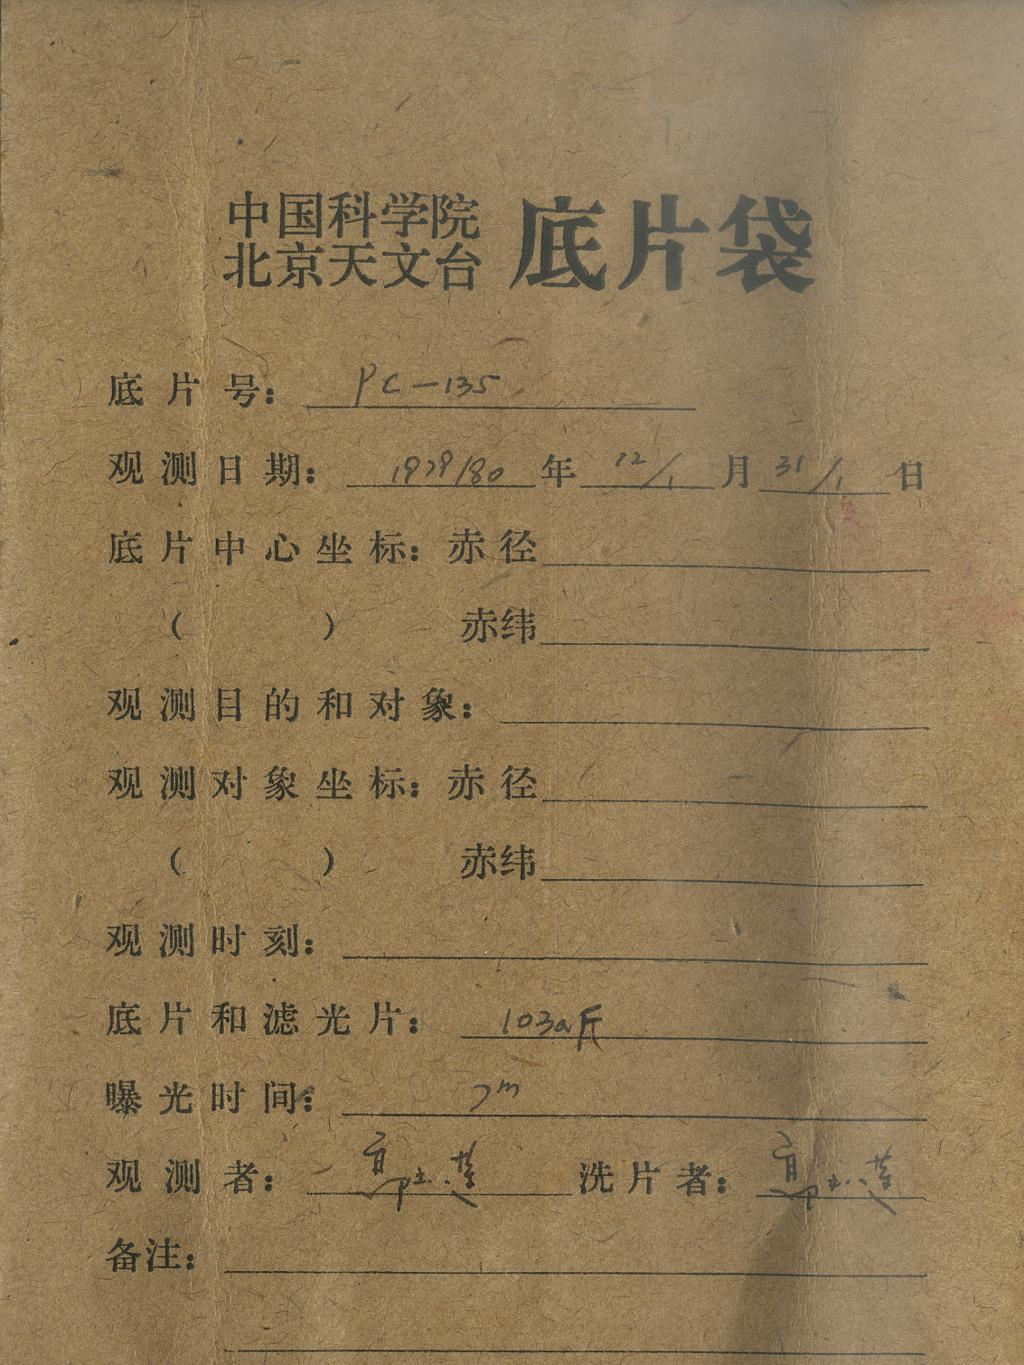 中国科学院
北京天文台
底片袋
底片号： PC-135
观测日期： 1979/80 年 12/1 月 31/1 日
底片中心坐标：赤径
（ ） 赤纬
观测目的和对象：
观测对象坐标：赤径
（ ） 赤纬
观测时刻：
底片和滤光片： 103a
曝光时间： 7m
观测者： 洗片者：
备注：